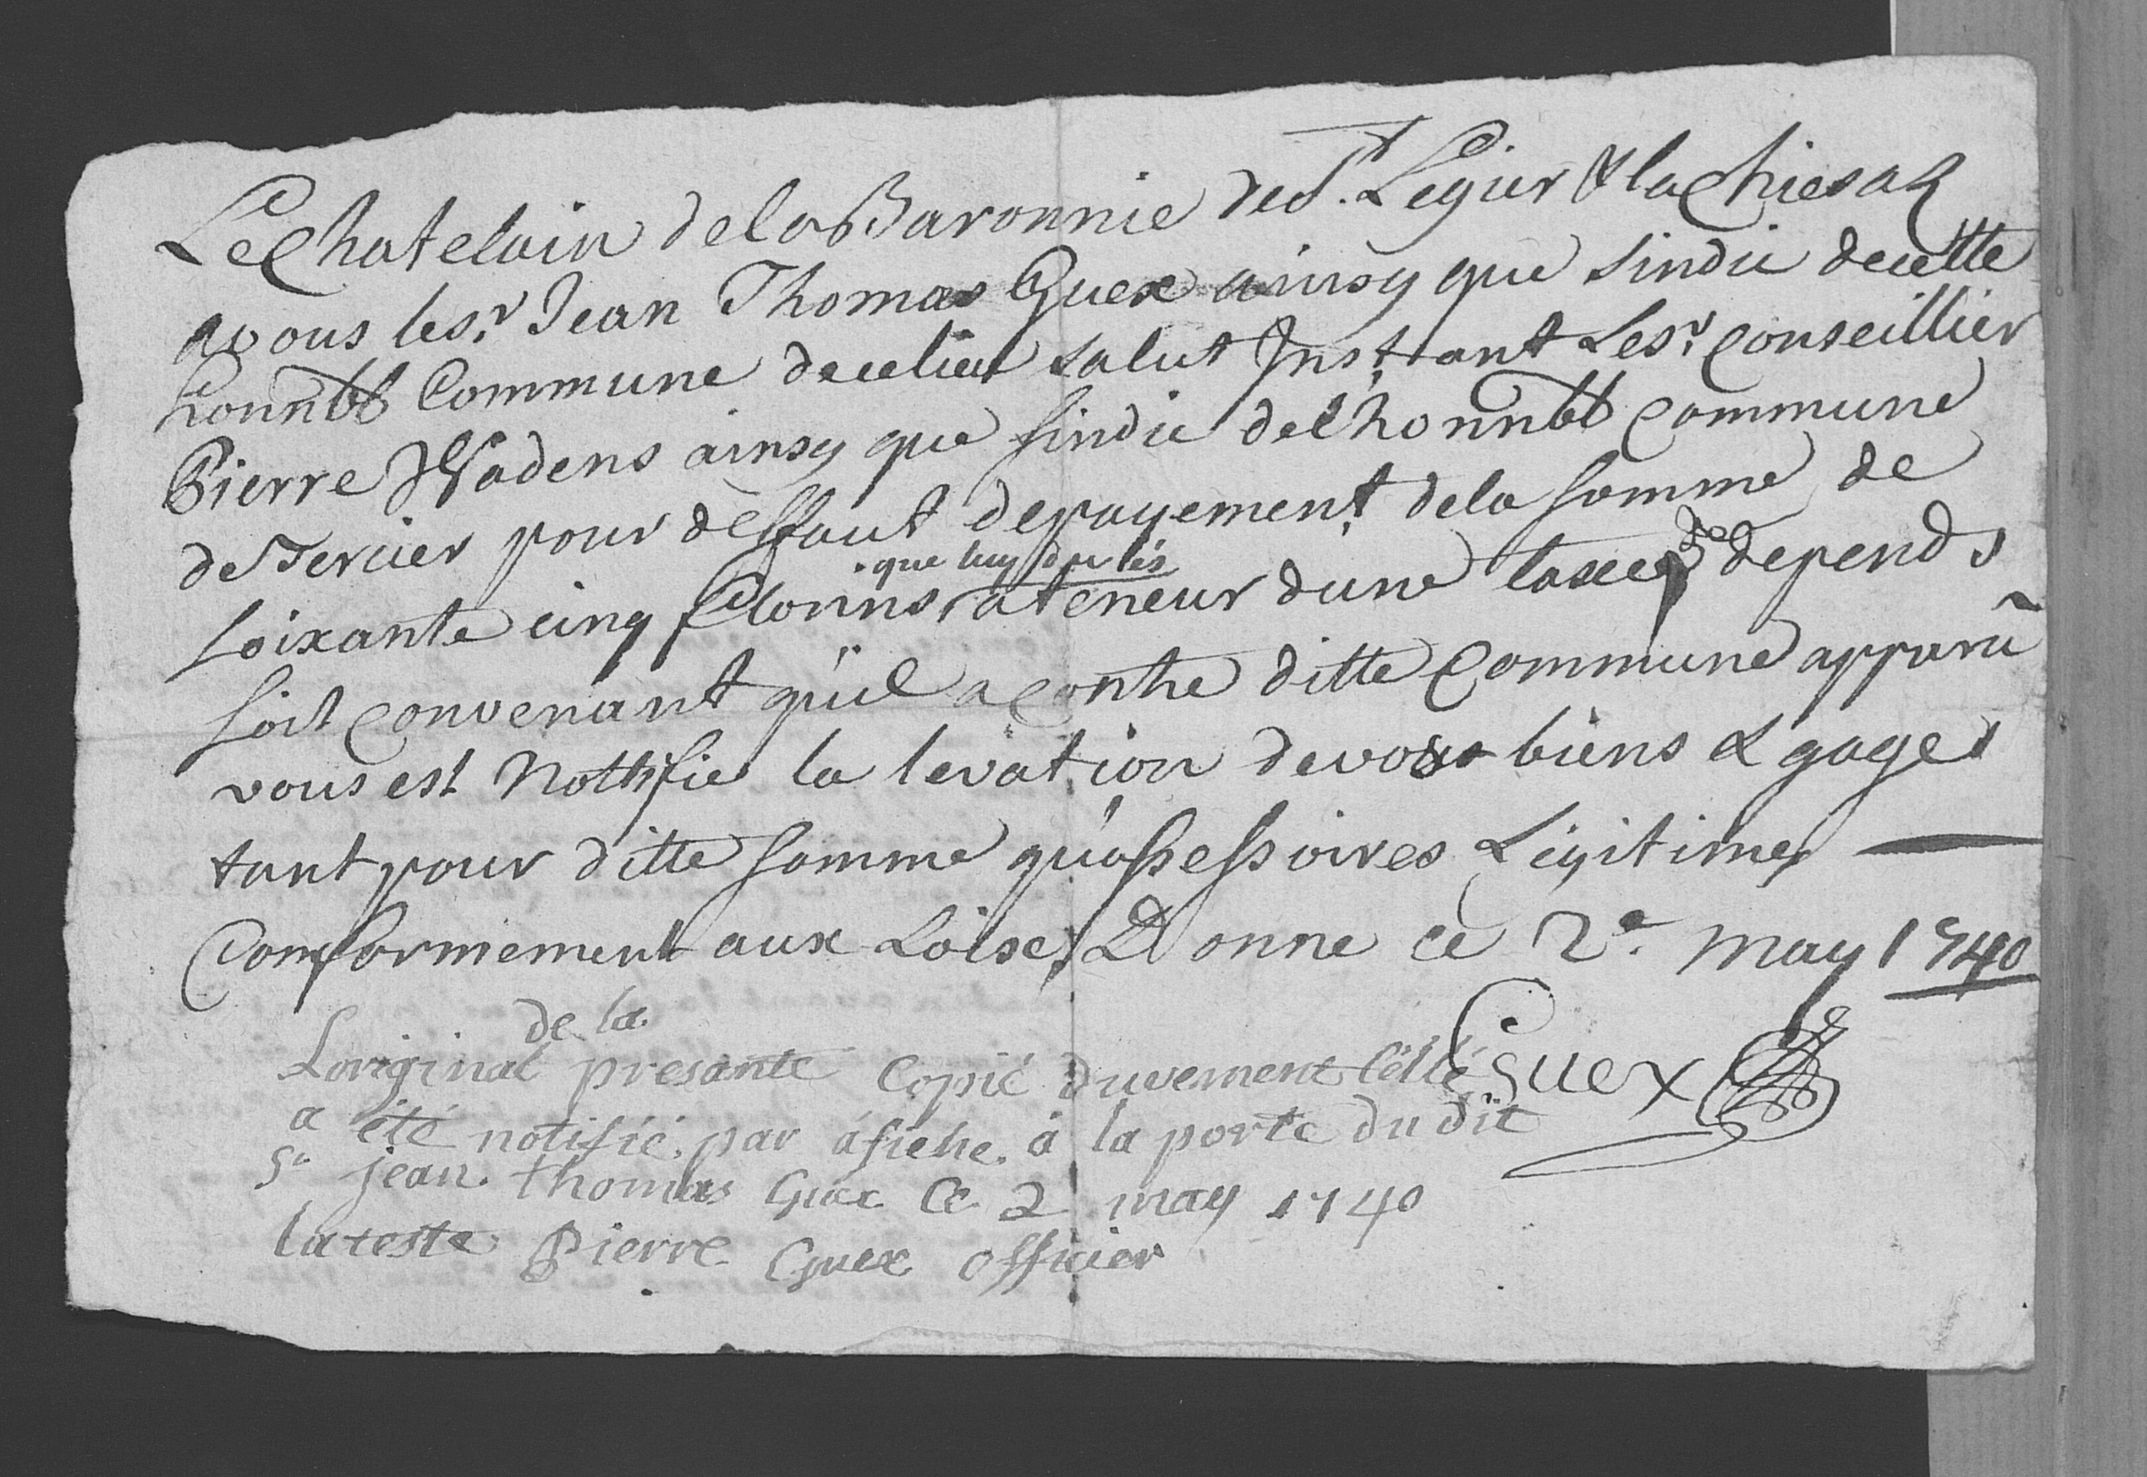 Le Chatelain de la Baronnie de St. Legier & la Chiesaz
a vous le sr. Jean Thomas Guex ainsy que sindic de cette
honnble Commune de ce lieu salut Instant Le sr. Conseillier
Pierre Wadens ainsy que sindic de l'honnble Commune
de Tercier pour deffaut de payement de la somme de
que luy dei tés
soixante cinq florins a teneur dune taxe de depends
soit convenant qu'il a contre ditte Commune apparu
vous est Nottifié la levation de vos biens & gages
tant pour ditte somme qu'assessoires Légitimes
Conformement aux Loix, Donne ce 2e. May 1740
Guex
de la
Loriginal presante Copié duvement Céllé
a été notifié par afiche a la porte du dit
Sr jean thomas Guex Ce 2 may 1740
lateste Pierre Guex officier